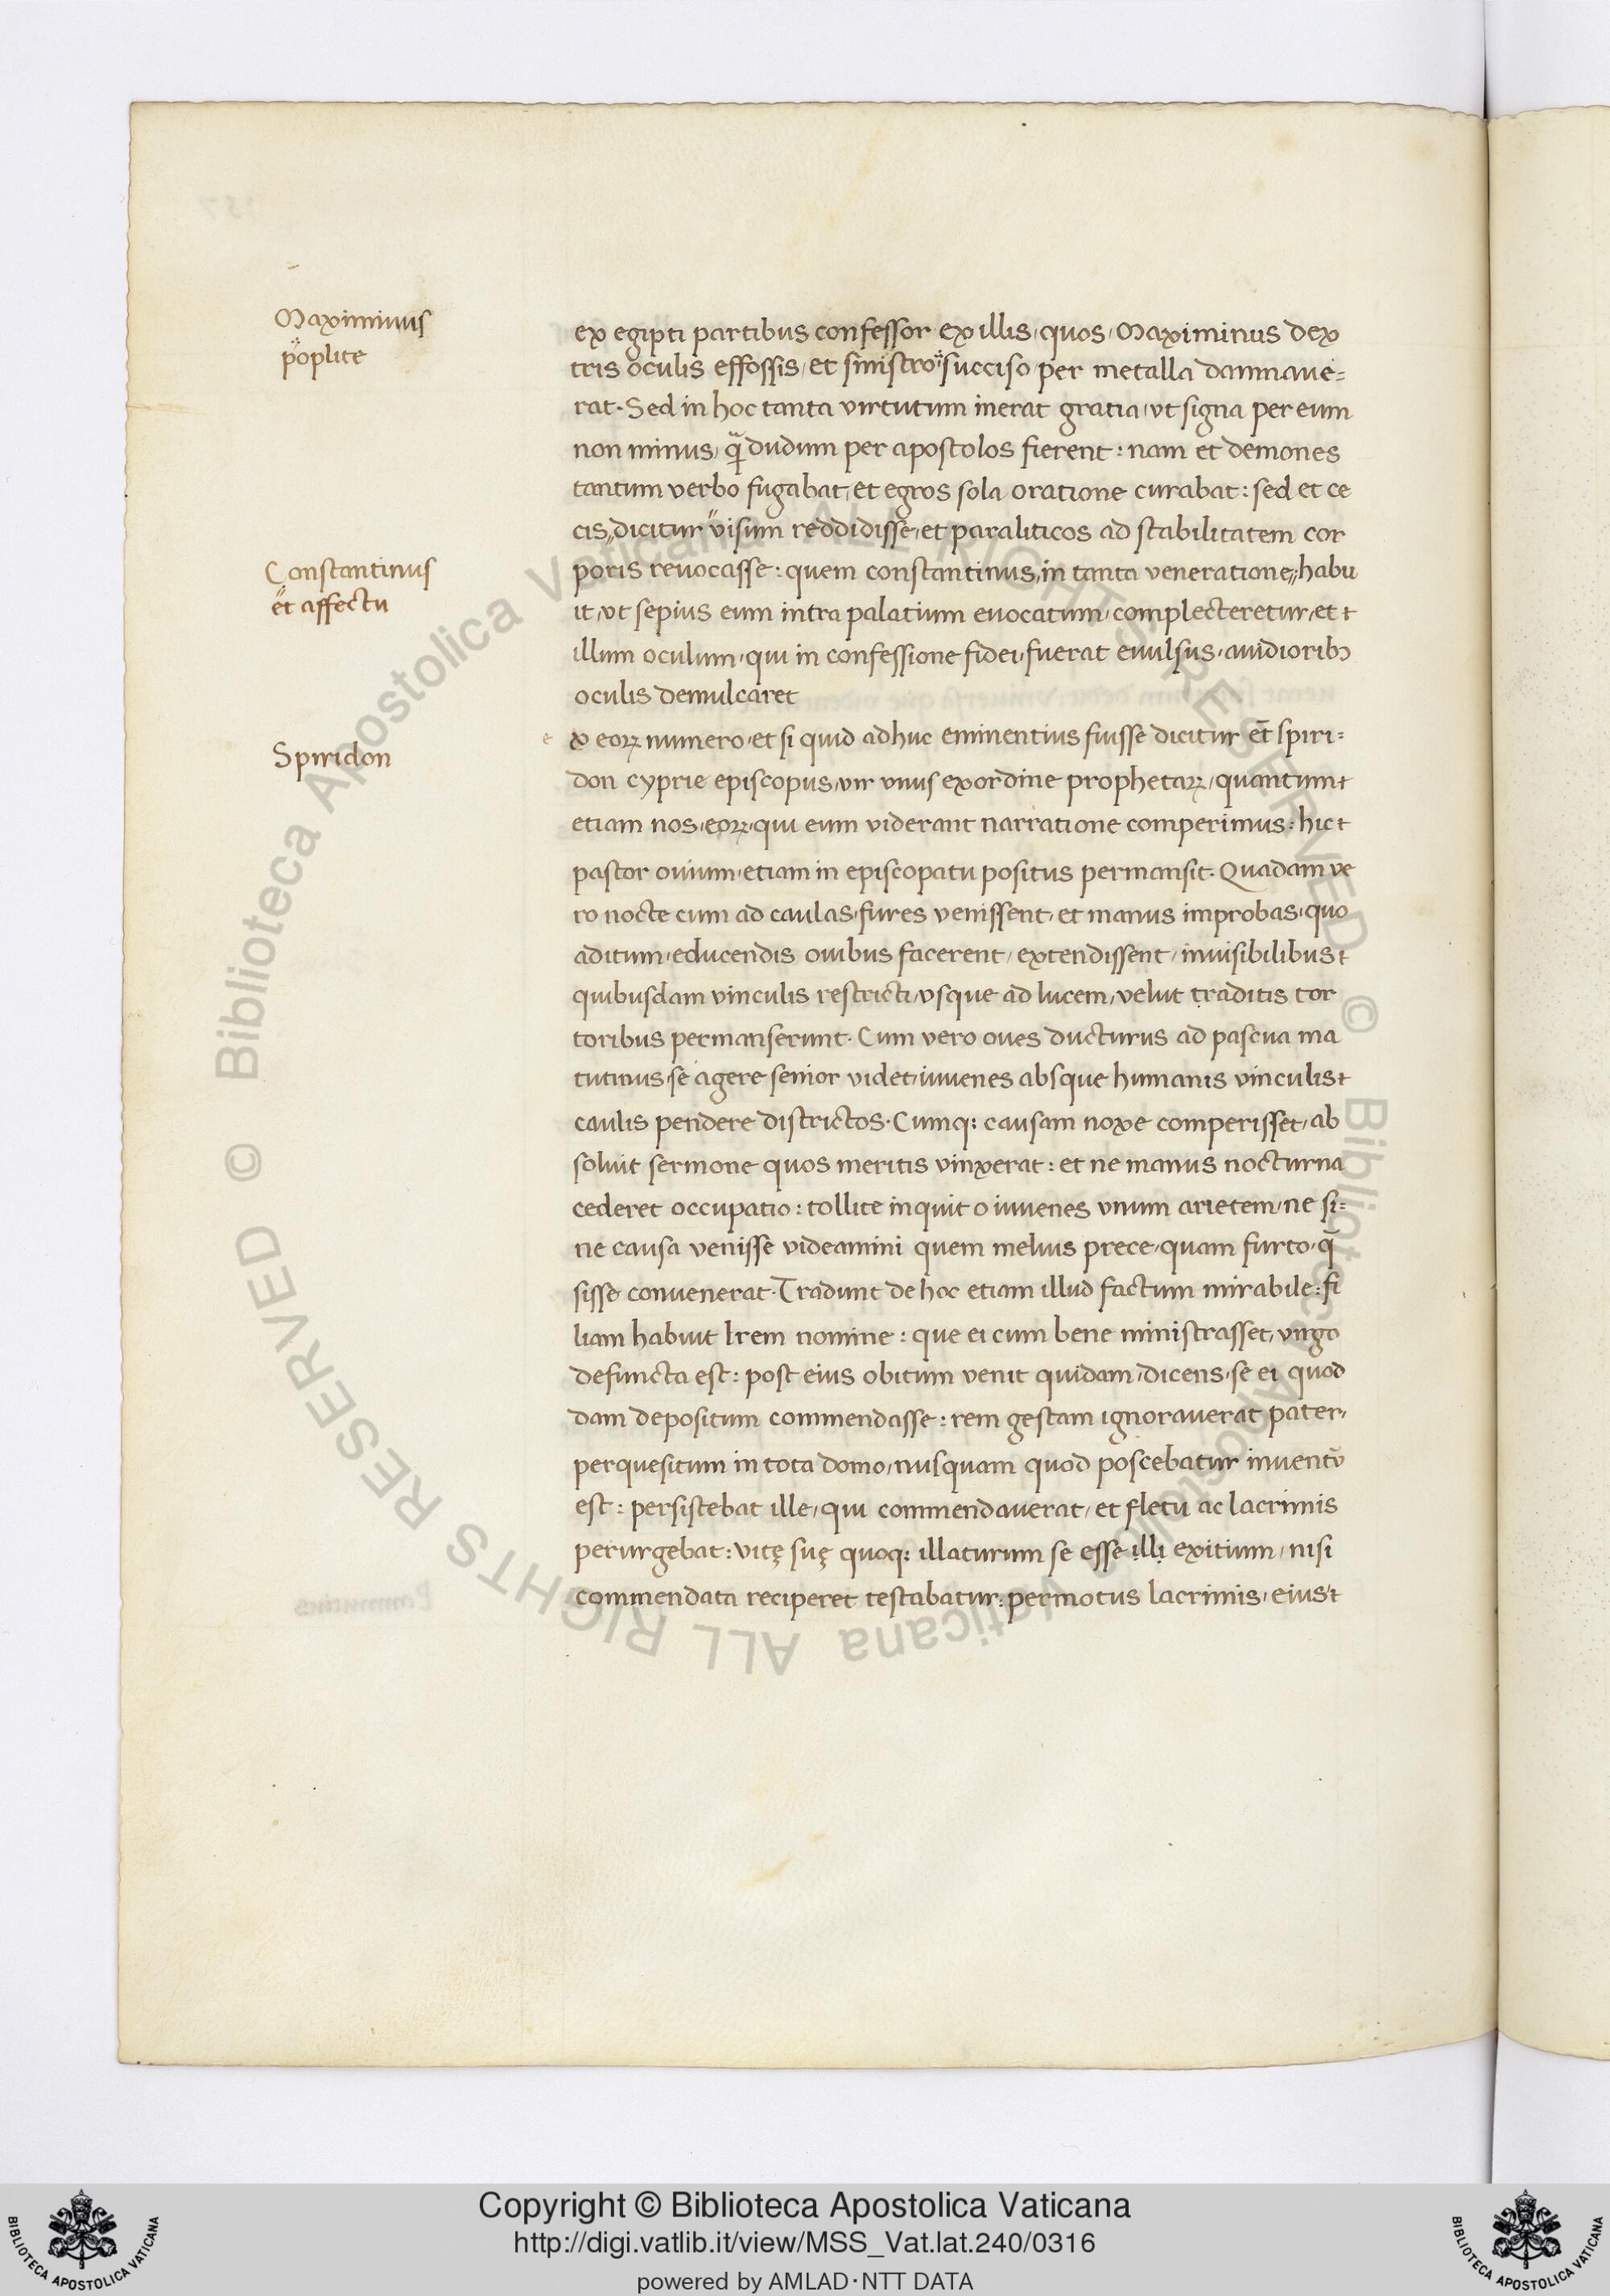 Maximinus
poplite
Constantinus
et affectu
Spiridon
ex egipti partibus confessor ex illis, quos, Maximinus dex
tris oculis effossis, et sinistro succiso, per metalla damnaue=
rat. Sed in hoc tanta virtutum inerat gratia, vt signa per eum
non minus, q̃ dudum per apostolos fierent: nam et demones
tantum verbo fugabat, et egros sola oratione curabat: sed et ce
cis, dicitur visum reddidisse, et paraliticos ad stabilitatem cor
poris reuocasse: quem constantinus, in tanta veneratione, habu
it, vt sepius eum intra palatium euocatum, complecteretur, et
illum oculum, qui in confessione fidei, fuerat euulsus, auidioribꝫ
oculis demulcaret
e x eoꝝ numero, et si quid adhuc eminentius fuisse dicitur et̄ spiri=
don cyprie episcopus, vir vnus exordine prophetaꝝ, quantum
etiam nos, eoꝝ, qui eum viderant narratione comperimus: hic
pastor ouium, etiam in episcopatu positus permansit. Quadam ve
ro nocte cum ad caulas, fures venissent, et manus improbas, quo
aditum, educendis ouibus facerent, extendissent, inuisibilibus
quibusdam vinculis restricti, vsque ad lucem, velut traditis tor
toribus permanserunt. Cum vero oues ducturus ad pascua ma
tutinus se agere senior videt, iuuenes absque humanis vinculis
caulis pendere districtos. Cumq: causam noxe comperisset, ab
soluit sermone quos meritis vinxerat: et ne manus nocturna
cederet occupatio: tollite inquit o iuuenes vnum arietem, ne si=
ne causa venisse videamini quem melius prece, quam furto, q̄
sisse conuenerat. Tradunt de hoc etiam illud factum mirabile: fi
liam habuit Irem nomine: que ei cum bene ministrasset, virgo
defuncta est: post eius obitum venit quidam, dicens, se ei quod
dam depositum commendasse: rem gestam ignorauerat pater,
perquesitum in tota domo, nusquam quod poscebatur inuentū
est: persistebat ille, qui commendauerat, et fletu ac lacrimis
perurgebat: vitę suę quoq: illaturum se esse illi exitium, nisi
commendata reciperet testabatur: permotus lacrimis, eius
© Biblioteca Apostolica Vaticana ALL RIGHTS RESERVED © Biblioteca Apostolica Vaticana ALL RIGHTS RESERVED
Copyright © Biblioteca Apostolica Vaticana
http://digi.vatlib.it/view/MSS_Vat.lat.240/0316
powered by AMLAD·NTT DATA
BIBLIOTECA APOSTOLICA VATICANA
BIBLIOTECA APOSTOLICA VATICANA